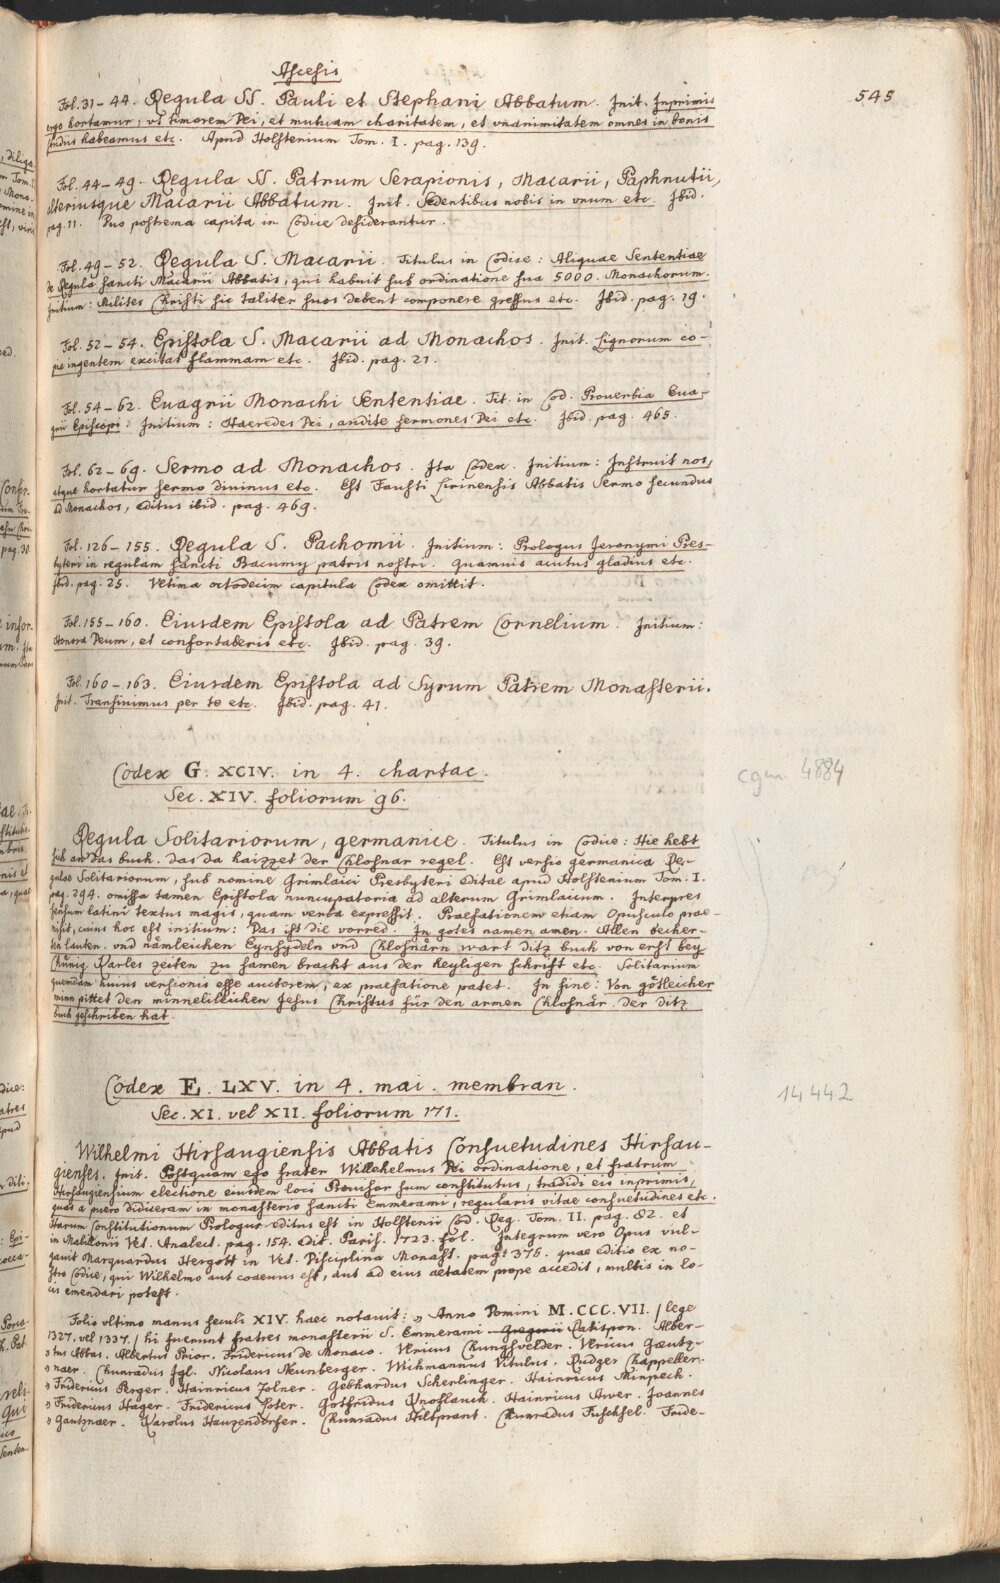 Ascesis
545
Fol. 31-44. Regula SS. Pauli et Stephani Abbatum. Init. Inprimis
ergo hortamur, vt timorem Dei, et mutuam charitatem, et vnanimitatem omnes in bonis
studiis habeamus etc. Apud Holstenium Tom. I. pag. 139.
Fol. 44-49. Regula SS. Patrum Serapionis, Macarii, Paphnutii,
alteriusque Macarii Abbatum. Init. Sedentibus nobis in vnum etc. Ibid.
pag. 11. Duo postrema capita in Codice desiderantur.
Fol. 49-52. Regula S. Macarii. Titulus in Codice: Aliquae Sententiae
de Regula sancti Macarii Abbatis, qui habuit sub ordinatione sua 5000. Monachorum.
Initium: Milites Christi sic taliter suos debent componere gressus etc. Ibid. pag. 19.
Fol. 52-54. Epistola S. Macarii ad Monachos. Init. Lignorum co-
pia ingentem excitat flammam etc. Ibid. pag. 21.
Fol. 54-62. Euagrii Monachi Sententiae. Tit. in Cod. Prouerbia Eua-
grii Episcopi: Initium: Haeredes Dei, audite sermones Dei etc. Ibid. pag. 465.
Fol. 62-69. Sermo ad Monachos. Ita Codex. Initium: Instruit nos,
atque hortatur sermo diuinus etc. Est Fausti Lirinensis Abbatis Sermo secundus
ad Monachos, editus ibid. pag. 469.
Fol. 126-155. Regula S. Pachomii. Initium: Prologus Jeronymi Pres-
byteri in regulam sancti Bacumy patris nostri. Quamuis acutus gladius etc.
Ibid. pag. 25. Vltima octodecim capitula Codex omittit.
Fol. 155-160. Eiusdem Epistola ad Patrem Cornelium. Initium:
Honora Deum, et confortaberis etc. Ibid. pag. 39.
Fol. 160-163. Eiusdem Epistola ad Syrum Patrem Monasterii.
Init. Transiuimus per te etc. Ibid. pag. 41.
Codex G. XCIV. in 4. chartac.
cgm 4884
Sec. XIV. foliorum 96.
Regula Solitariorum, germanice. Titulus in Codice: Hie hebt
sich an das buch. das da haizzet der Chlosnar regel. Est versio germanica Re-
gulae Solitariorum, sub nomine Grimlaici Presbyteri editae apud Holstenium Tom. I.
pag. 294. omissa tamen Epistola nuncupatoria ad alterum Grimlaicum. Interpres
sensum latini textus magis, quam verba expressit. Praefationem etiam Opusculo prae-
misit, cuius hoc est initium: Das ist die vorred. In gotes namen amen. Allen becher-
ten lauten. vnd nämleichen Eynsydeln vnd Chlosnärn wart ditz buch von erst bey
Chunig Karles zeiten zu samen bracht aus der heyligen schrift etc. Solitarium
quemdam huius versionis esse auctorem, ex praefatione patet. In fine: Von götleicher
minn pittet den minnekleichen Jesus Christus für den armen Chlosnär der ditz
buch geschriben hat.
Codex E. LXV. in 4. mai. membran.
14442
Sec. XI. vel XII. foliorum 171.
Wilhelmi Hirsaugiensis Abbatis Consuetudines Hirsau-
gienses. Init. Postquam ego frater Willehelmus Dei ordinatione, et fratrum
Hirsaugiensium electione eiusdem loci Prouisor sum constitutus, tradidi eis inprimis,
quas a puero didiceram in monasterio sancti Emmerami, regularis vitae consuetudines etc.
Harum Constitutionum Prologus editus est in Holstenii Cod. Reg. Tom. II. pag. 82. et
in Mabillonii Vet. Analect. pag. 154. edit. Paris. 1723. fol. Integrum vero Opus vul-
gauit Marquardus Hergott in Vet. Disciplina Monast. pag. 375. quae editio ex no-
stro Codice, qui Wilhelmo aut coaeuus est, aut ad eius aetatem prope accedit, multis in lo-
cis emendari potest.
Folio vltimo manus seculi XIV. haec notauit: „Anno Domini M.CCC.VII. / lege
1327. vel 1337. / hi fuerunt fratres monasterii S. Emmerami Ratispon. Alber-
„tus Abbas. Albertus Prior. Fridericus de Monaco. Vlricus Chungsvelder. Vlricus Gaentz-
„naer. Chunradus Igl. Nicolaus Neunberger. Wichmannus Vitulus. Rudger Chappeller.
„Fridericus Perger. Hainricus Zolner. Gebhardus Scherlinger. Hainricus Minpech.
„Fridericus Hager. Fridericus Oster. Gotfridus Vnoflauch. Hainricus Awer. Joannes
„Gautznaer. Karolus Hauzendorfer. Chunradus Hiltprant. Chunradus Fuschsel. Fride-